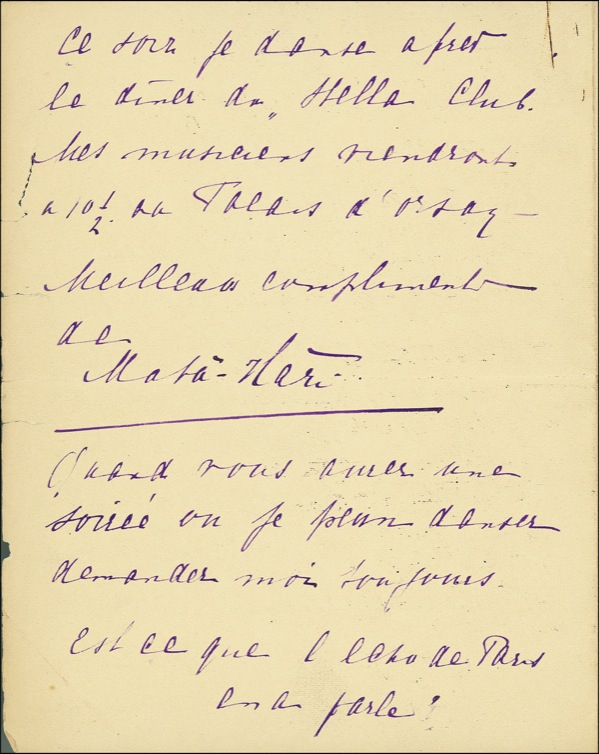 Ce soir je danse apres
le diner du „ Stella Club.
Mes musiciens viendront
a 10 1/2 au Palais d'orsay –
Meilleurs compliments
de
Mata-Hari
Quand vous aurez une
soirée ou je peux danser
demander moi toujours.
Est ce que l echo de Paris
en a parle?